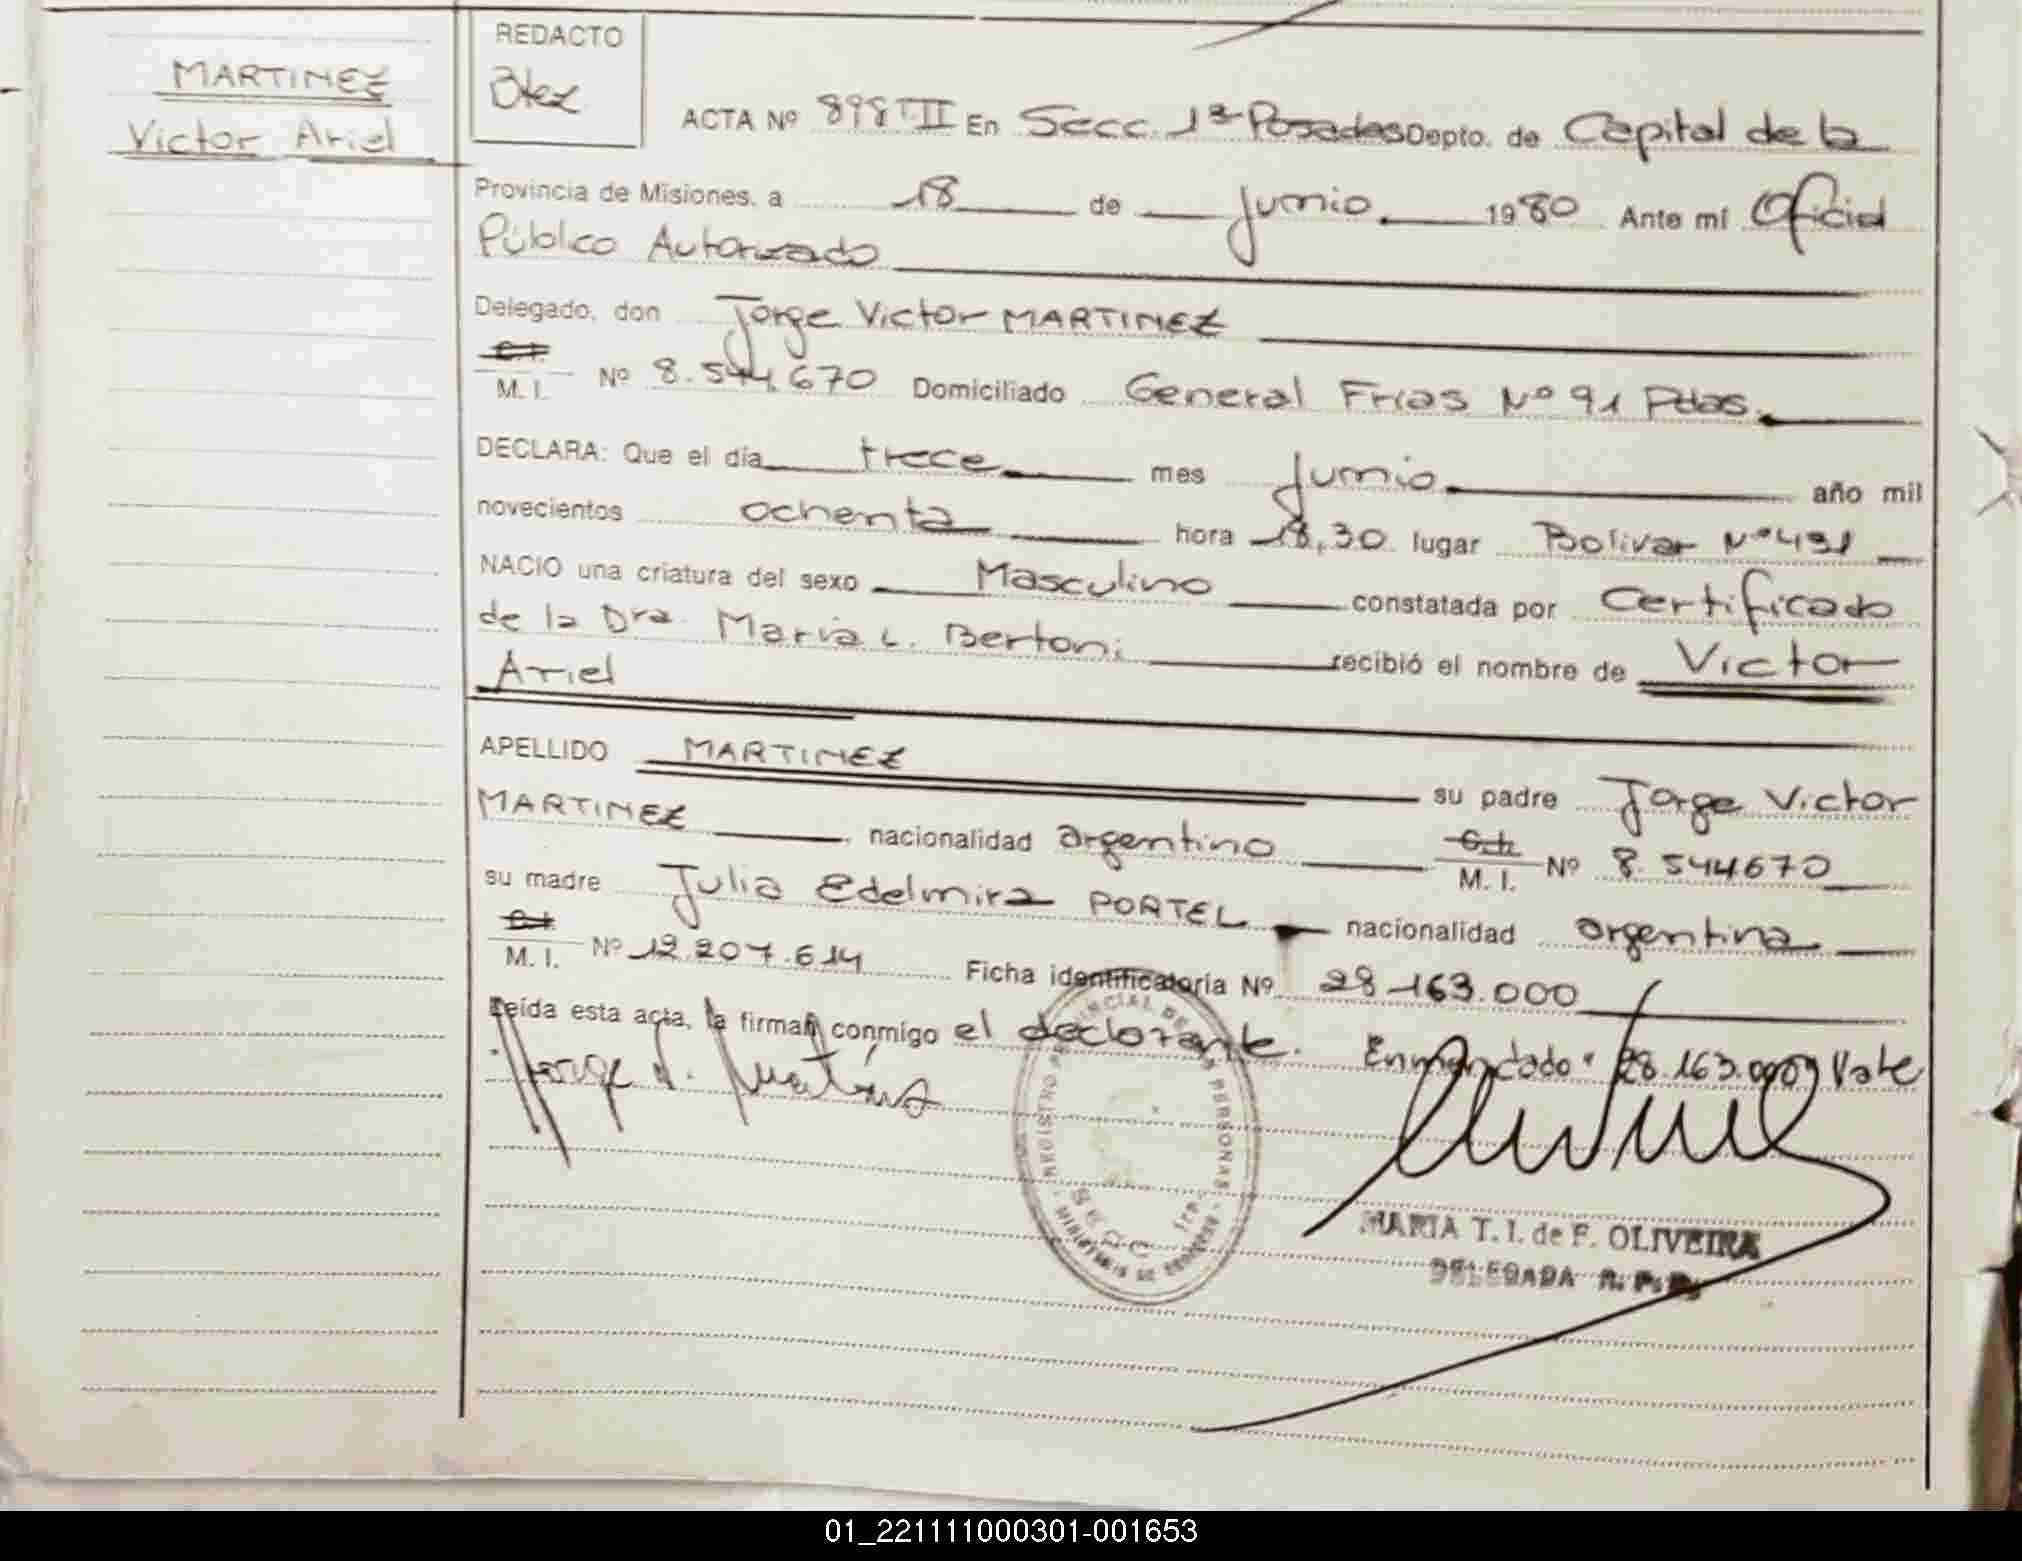 MARTINEZ
Victor Ariel
REDACTO
Btez
ACTA Nº 898 T II En Secc. 1ª Posadas Depto. de Capital de la
Provincia de Misiones, a 18 de Junio 1980 Ante mí Oficial
Público Autorizado
Delegado, don Jorge Victor MARTINEZ
C.I.
M. I. Nº 8.544.670 Domiciliado General Frias Nº 91 Pdas.
DECLARA: Que el día trece mes Junio año mil
novecientos ochenta hora 18,30 lugar Bolivar Nº 491
NACIO una criatura del sexo Masculino constatada por Certificado
de la Dra. Maria L. Bertoni recibió el nombre de Victor
Ariel
APELLIDO MARTINEZ su padre Jorge Victor
MARTINEZ nacionalidad argentino C.I. M. I. Nº 8.544670
su madre Julia Edelmira PORTEL nacionalidad argentina
C.I.
M. I. Nº 12.207.614 Ficha identificatoria Nº 28.163.000
Leída esta acta, la firman conmigo el declarante. Enmendado: 28.163.000 Vale
Jorge V. Martínez
REGISTRO PROVINCIAL DE LAS PERSONAS
SECC. 1ra.
MINISTERIO DE GOBIERNO
MARIA T. I. de F. OLIVEIRA
DELEGADA R. P. P.
01_221111000301-001653